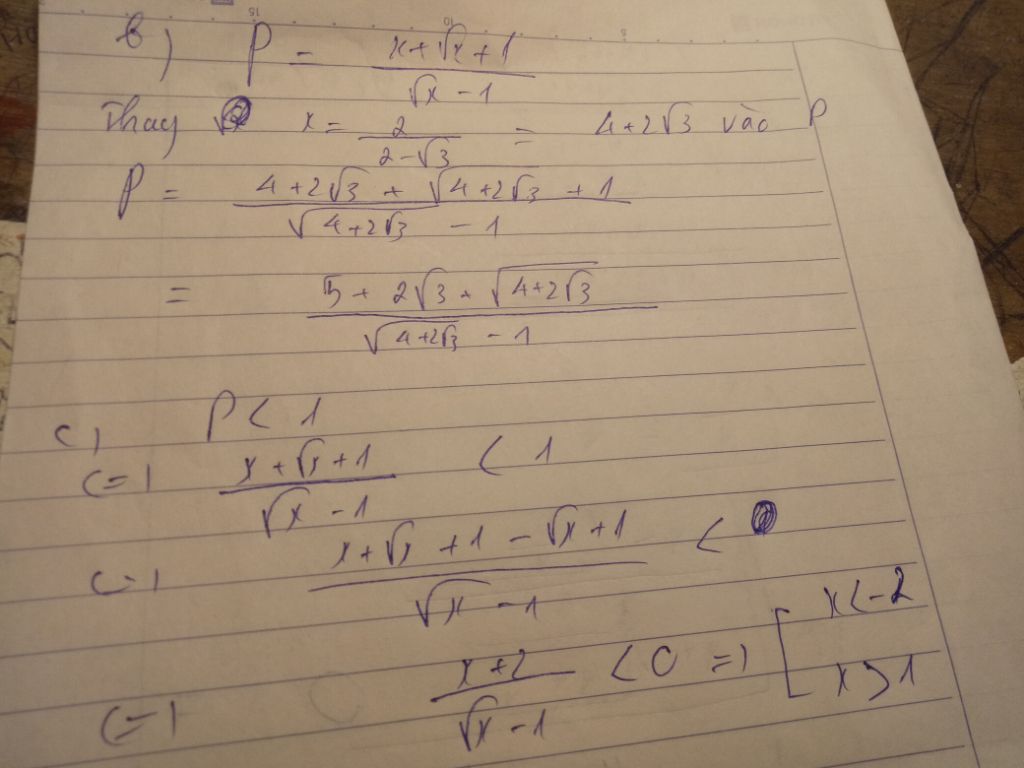 b) P = (x+√x+1)/(√x-1)
Thay x = 2/(2-√3) = 4+2√3 vào P
P = (4+2√3+√(4+2√3)+1)/(√(4+2√3) - 1)
= (5+2√3+√(4+2√3))/(√(4+2√3) - 1)
c, P < 1
(=) (x+√x+1)/(√x-1) < 1
(=) (x+√x+1-√x+1)/(√x-1) <
(=) (x+2)/(√x-1) < 0 =) [ x<-2
x>1